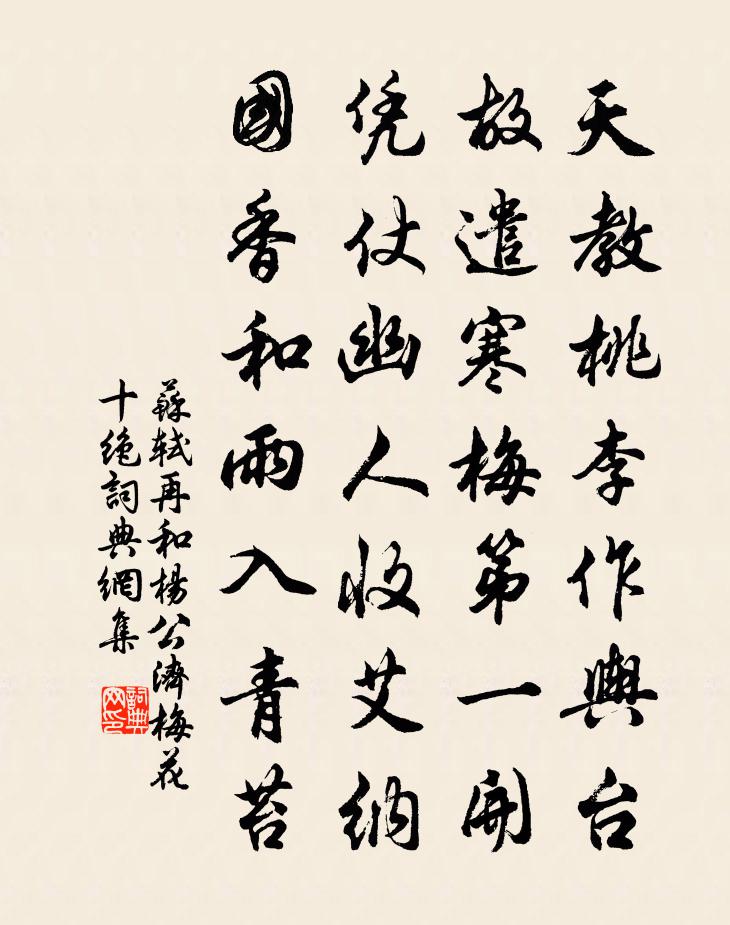 天教桃李作輿台
故遣寒梅第一開
凭仗幽人收艾納
國香和雨入青苔
蘇軾再和楊公濟梅花
十絶詞典網集
詞典网印